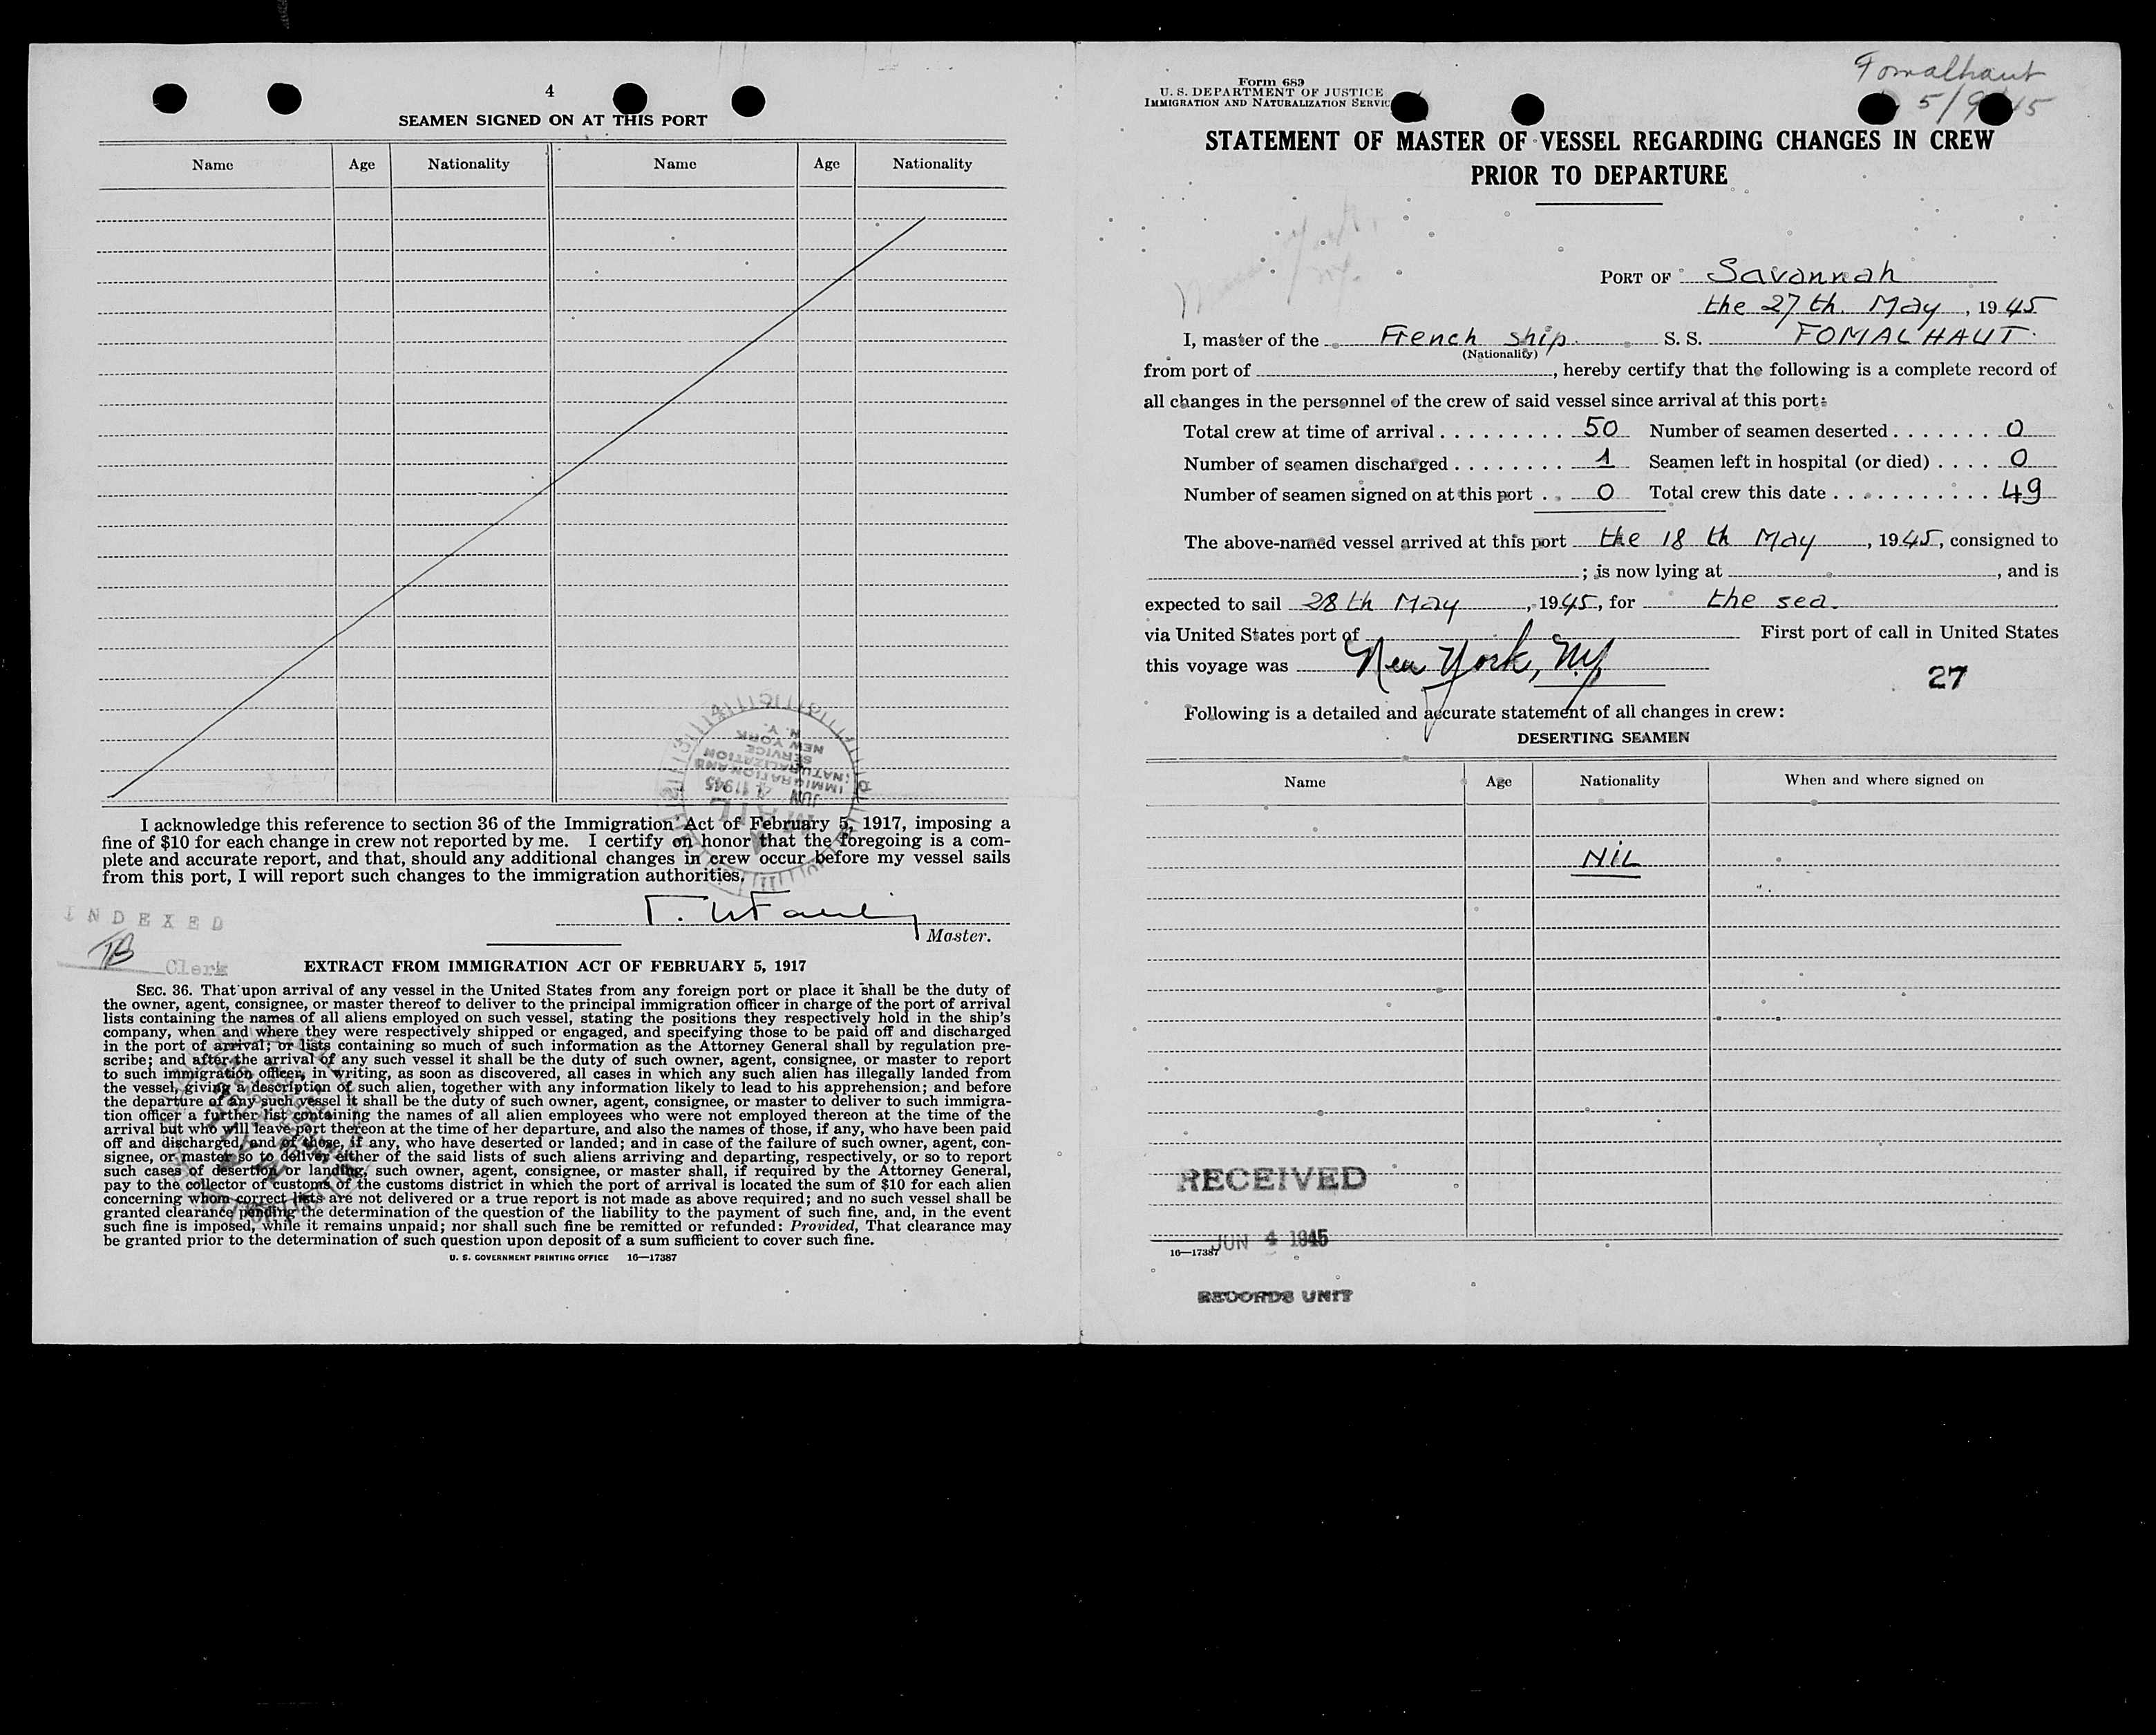 4
SEAMEN SIGNED ON AT THIS PORT
Name Age Nationality Name Age Nationality
I acknowledge this reference to section 36 of the Immigration Act of February 5, 1917, imposing a
fine of $10 for each change in crew not reported by me. I certify on honor that the foregoing is a com-
plete and accurate report, and that, should any additional changes in crew occur before my vessel sails
from this port, I will report such changes to the immigration authorities.
IMMIGRATION AND
NATURALIZATION
SERVICE
NEW YORK
N. Y.
JUN 4 1945
MAIL
Master.
INDEXED
TB Clerk
EXTRACT FROM IMMIGRATION ACT OF FEBRUARY 5, 1917
SEC. 36. That upon arrival of any vessel in the United States from any foreign port or place it shall be the duty of
the owner, agent, consignee, or master thereof to deliver to the principal immigration officer in charge of the port of arrival
lists containing the names of all aliens employed on such vessel, stating the positions they respectively hold in the ship's
company, when and where they were respectively shipped or engaged, and specifying those to be paid off and discharged
in the port of arrival; or lists containing so much of such information as the Attorney General shall by regulation pre-
scribe; and after the arrival of any such vessel it shall be the duty of such owner, agent, consignee, or master to report
to such immigration officer, in writing, as soon as discovered, all cases in which any such alien has illegally landed from
the vessel, giving a description of such alien, together with any information likely to lead to his apprehension; and before
the departure of any such vessel it shall be the duty of such owner, agent, consignee, or master to deliver to such immigra-
tion officer a further list containing the names of all alien employees who were not employed thereon at the time of the
arrival but who will leave port thereon at the time of her departure, and also the names of those, if any, who have been paid
off and discharged, and of those, if any, who have deserted or landed; and in case of the failure of such owner, agent, con-
signee, or master so to deliver either of the said lists of such aliens arriving and departing, respectively, or so to report
such cases of desertion or landing, such owner, agent, consignee, or master shall, if required by the Attorney General,
pay to the collector of customs of the customs district in which the port of arrival is located the sum of $10 for each alien
concerning whom correct lists are not delivered or a true report is not made as above required; and no such vessel shall be
granted clearance pending the determination of the question of the liability to the payment of such fine, and, in the event
such fine is imposed, while it remains unpaid; nor shall such fine be remitted or refunded: Provided, That clearance may
be granted prior to the determination of such question upon deposit of a sum sufficient to cover such fine.
U. S. GOVERNMENT PRINTING OFFICE 16—17387
Fomalhaut
5/9/45
Form 689
U. S. DEPARTMENT OF JUSTICE
IMMIGRATION AND NATURALIZATION SERVIC
STATEMENT OF MASTER OF VESSEL REGARDING CHANGES IN CREW
PRIOR TO DEPARTURE
PORT OF Savannah
the 27th. May, 1945
I, master of the French ship. S. S. FOMALHAUT.
(Nationality)
from port of , hereby certify that the following is a complete record of
all changes in the personnel of the crew of said vessel since arrival at this port:
Total crew at time of arrival . . . . . . . . . 50 Number of seamen deserted . . . . . . . 0
Number of seamen discharged . . . . . . . . 1 Seamen left in hospital (or died) . . . . 0
Number of seamen signed on at this port . . 0 Total crew this date . . . . . . . . . . . 49
The above-named vessel arrived at this port the 18 th May, 1945, consigned to
; is now lying at , and is
expected to sail 28th May, 1945, for the sea.
via United States port of First port of call in United States
this voyage was New York, N.Y.
27
Following is a detailed and accurate statement of all changes in crew:
DESERTING SEAMEN
Name Age Nationality When and where signed on
NiL
RECEIVED
JUN 4 1945
16—17387
RECORDS UNIT